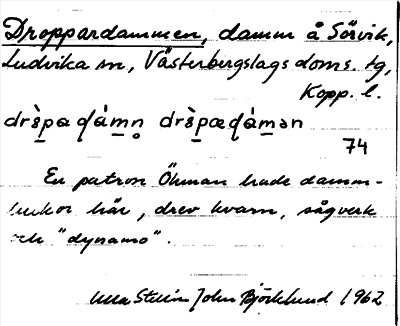 Droppardammen, damm å Sörvik,
Ludvika sn, Västerbergslags doms. tg,
Kopp. l.
drs̀pa qámn̥ drs̀pæqámən
74
En patron Öhman hade damm-
luckor här, drev kvarn, sågverk
och "dynamo".
Ulla Stein John Björklund 1962